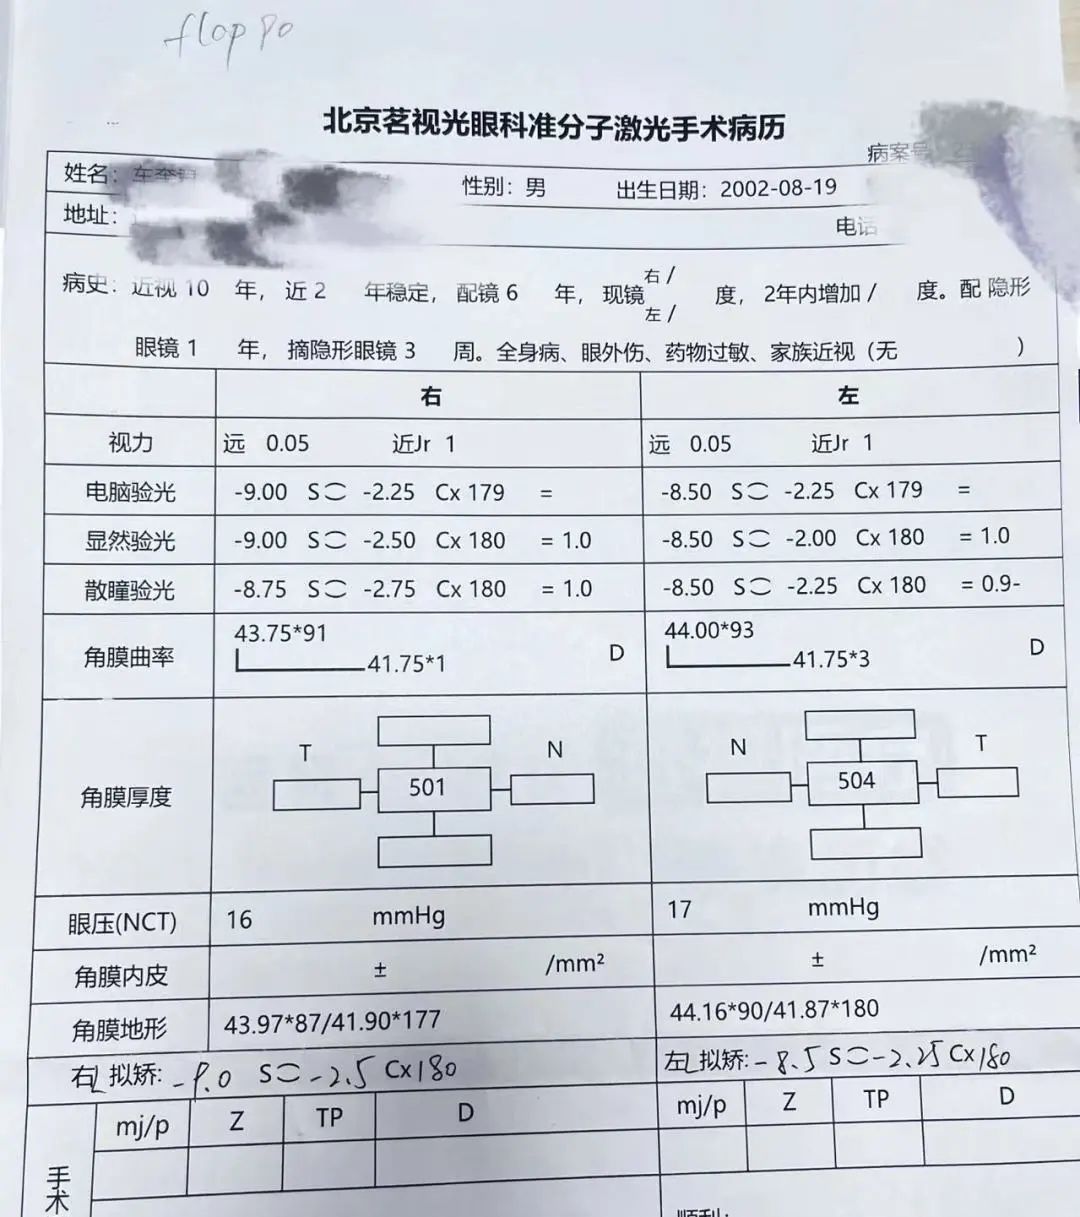 floppo
北京茗视光眼科准分子激光手术病历
病案号
姓名: 性别: 男 出生日期: 2002-08-19
地址: 电话
病史: 近视 10 年, 近 2 年稳定, 配镜 6 年, 现镜 右 / 左 / 度, 2年内增加 / 度。配 隐形
眼镜 1 年, 摘隐形眼镜 3 周。全身病、眼外伤、药物过敏、家族近视 (无 )
右 左
视力 远 0.05 近Jr 1 远 0.05 近Jr 1
电脑验光 -9.00 S⌒ -2.25 Cx 179 = -8.50 S⌒ -2.25 Cx 179 =
显然验光 -9.00 S⌒ -2.50 Cx 180 = 1.0 -8.50 S⌒ -2.00 Cx 180 = 1.0
散瞳验光 -8.75 S⌒ -2.75 Cx 180 = 1.0 -8.50 S⌒ -2.25 Cx 180 = 0.9-
角膜曲率 43.75*91 41.75*1 D 44.00*93 41.75*3 D
角膜厚度 T 501 N N 504 T
眼压(NCT) 16 mmHg 17 mmHg
角膜内皮 ± /mm² ± /mm²
角膜地形 43.97*87/41.90*177 44.16*90/41.87*180
右 拟矫: -9.0 S⌒ -2.5 Cx180 左 拟矫: -8.5 S⌒ -2.25 Cx180
手术 mj/p Z TP D mj/p Z TP D